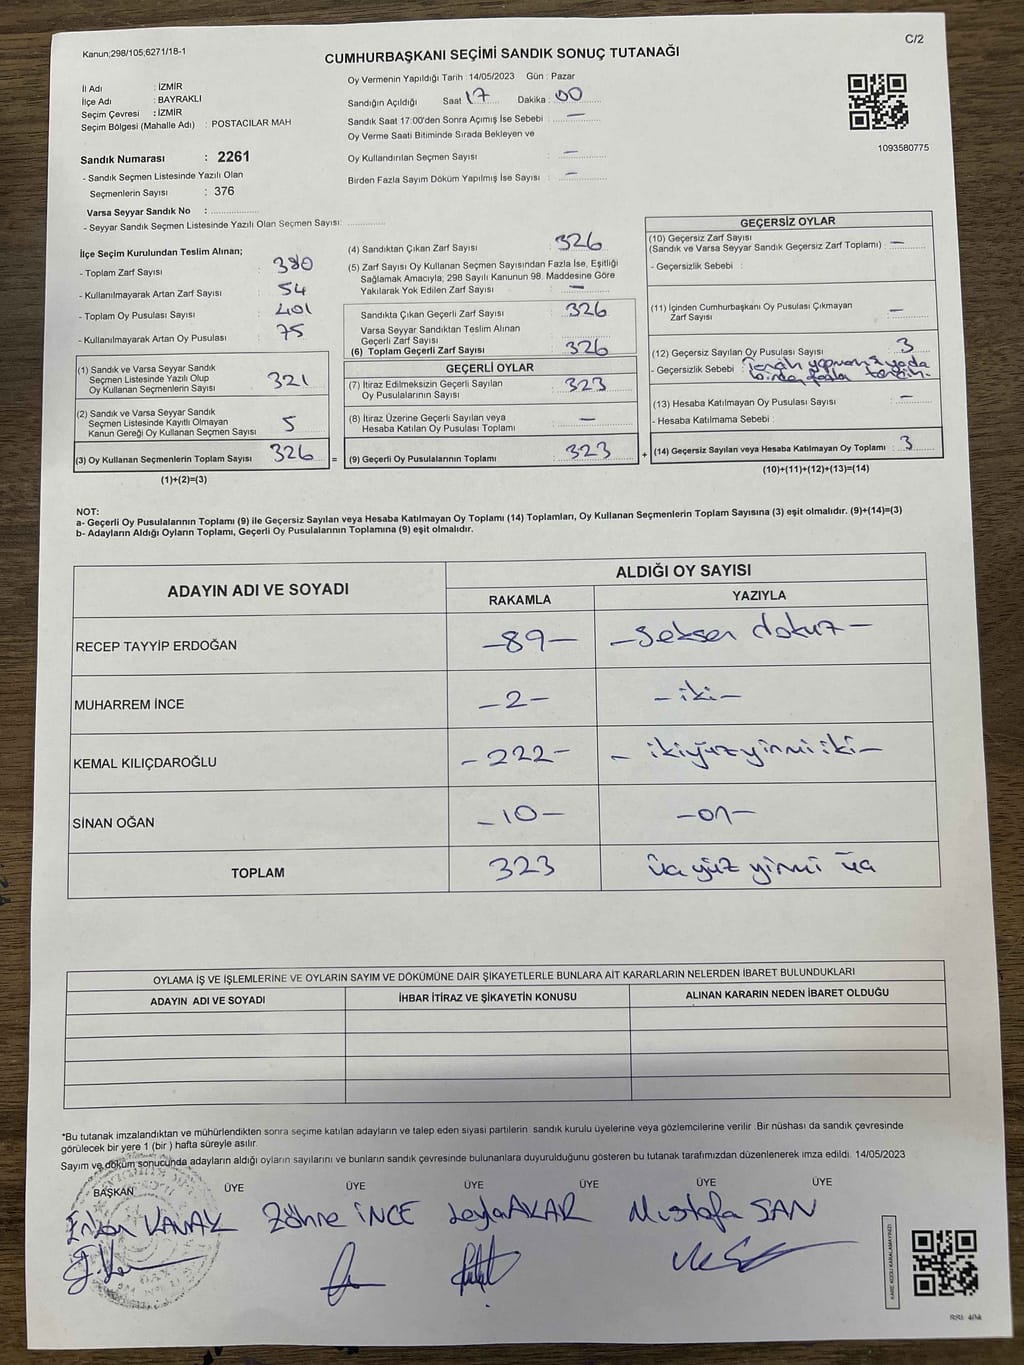 Kanun;298/105;6271/18-1
C/2
CUMHURBAŞKANI SEÇİMİ SANDIK SONUÇ TUTANAĞI
İl Adı : İZMİR
İlçe Adı : BAYRAKLI
Seçim Çevresi : İZMİR
Seçim Bölgesi (Mahalle Adı) : POSTACILAR MAH
Sandık Numarası : 2261
- Sandık Seçmen Listesinde Yazılı Olan
Seçmenlerin Sayısı : 376
Varsa Seyyar Sandık No :
- Seyyar Sandık Seçmen Listesinde Yazılı Olan Seçmen Sayısı:
Oy Vermenin Yapıldığı Tarih : 14/05/2023 Gün : Pazar
Sandığın Açıldığı Saat 17 Dakika : 00
Sandık Saat 17:00'den Sonra Açımış İse Sebebi : —
Oy Verme Saati Bitiminde Sırada Bekleyen ve
Oy Kullandırılan Seçmen Sayısı : —
Birden Fazla Sayım Döküm Yapılmış İse Sayısı : —
1093580775
İlçe Seçim Kurulundan Teslim Alınan;
- Toplam Zarf Sayısı : 380
- Kullanılmayarak Artan Zarf Sayısı : 54
- Toplam Oy Pusulası Sayısı : 401
- Kullanılmayarak Artan Oy Pusulası : 75
(1) Sandık ve Varsa Seyyar Sandık
Seçmen Listesinde Yazılı Olup
Oy Kullanan Seçmenlerin Sayısı : 321
(2) Sandık ve Varsa Seyyar Sandık
Seçmen Listesinde Kayıtlı Olmayan
Kanun Gereği Oy Kullanan Seçmen Sayısı : 5
(3) Oy Kullanan Seçmenlerin Toplam Sayısı : 326
(1)+(2)=(3)
(4) Sandıktan Çıkan Zarf Sayısı : 326
(5) Zarf Sayısı Oy Kullanan Seçmen Sayısından Fazla İse, Eşitliği
Sağlamak Amacıyla; 298 Sayılı Kanunun 98. Maddesine Göre
Yakılarak Yok Edilen Zarf Sayısı : —
Sandıkta Çıkan Geçerli Zarf Sayısı : 326
Varsa Seyyar Sandıktan Teslim Alınan
Geçerli Zarf Sayısı
(6) Toplam Geçerli Zarf Sayısı : 326
GEÇERLİ OYLAR
(7) İtiraz Edilmeksizin Geçerli Sayılan
Oy Pusulalarının Sayısı : 323
(8) İtiraz Üzerine Geçerli Sayılan veya
Hesaba Katılan Oy Pusulası Toplamı : —
= (9) Geçerli Oy Pusulalarının Toplamı : 323
GEÇERSİZ OYLAR
(10) Geçersiz Zarf Sayısı
(Sandık ve Varsa Seyyar Sandık Geçersiz Zarf Toplamı) : —
- Geçersizlik Sebebi :
(11) İçinden Cumhurbaşkanı Oy Pusulası Çıkmayan
Zarf Sayısı : —
(12) Geçersiz Sayılan Oy Pusulası Sayısı : 3
- Geçersizlik Sebebi :
fazla
(13) Hesaba Katılmayan Oy Pusulası Sayısı : —
- Hesaba Katılmama Sebebi :
+ (14) Geçersiz Sayılan veya Hesaba Katılmayan Oy Toplamı : 3
(10)+(11)+(12)+(13)=(14)
NOT:
a- Geçerli Oy Pusulalarının Toplamı (9) ile Geçersiz Sayılan veya Hesaba Katılmayan Oy Toplamı (14) Toplamları, Oy Kullanan Seçmenlerin Toplam Sayısına (3) eşit olmalıdır. (9)+(14)=(3)
b- Adayların Aldığı Oyların Toplamı, Geçerli Oy Pusulalarının Toplamına (9) eşit olmalıdır.
ADAYIN ADI VE SOYADI ALDIĞI OY SAYISI
RAKAMLA YAZIYLA
RECEP TAYYİP ERDOĞAN -89- -Seksen dokuz-
MUHARREM İNCE -2- -iki-
KEMAL KILIÇDAROĞLU -222- -ikiyüzyirmiiki-
SİNAN OĞAN -10- -on-
TOPLAM 323 üç yüz yirmi üç
OYLAMA İŞ VE İŞLEMLERİNE VE OYLARIN SAYIM VE DÖKÜMÜNE DAİR ŞİKAYETLERLE BUNLARA AİT KARARLARIN NELERDEN İBARET BULUNDUKLARI
ADAYIN ADI VE SOYADI İHBAR İTİRAZ VE ŞİKAYETİN KONUSU ALINAN KARARIN NEDEN İBARET OLDUĞU
*Bu tutanak imzalandıktan ve mühürlendikten sonra seçime katılan adayların ve talep eden siyasi partilerin sandık kurulu üyelerine veya gözlemcilerine verilir .Bir nüshası da sandık çevresinde
görülecek bir yere 1 (bir ) hafta süreyle asılır.
Sayım ve döküm sonucunda adayların aldığı oyların sayılarını ve bunların sandık çevresinde bulunanlara duyurulduğunu gösteren bu tutanak tarafımızdan düzenlenerek imza edildi. 14/05/2023
BAŞKAN ÜYE ÜYE ÜYE ÜYE ÜYE ÜYE
Zöhre İNCE Leyla AKAR Mustafa SAN